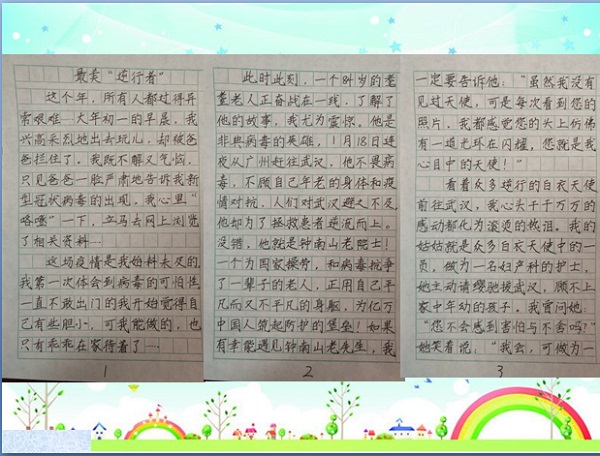 最美“逆行者”
这个年，所有人都过得异
常艰难…大年初一的早晨，我
兴高采烈地出去玩儿，却被爸
爸拦住了。我既不解又气恼，
只见爸爸一脸严肃地告诉我新
型冠状病毒的出现。我心里“
咯噔”一下，立马去网上浏览
了相关资料…
这场疫情是我始料未及的，
我第一次体会到病毒的可怕性
一直不敢出门的我开始觉得自
己有些胆小，可我能做的，也
只有乖乖在家待着了…
1
此时此刻，一个84岁的耄
耋老人正奋战在一线，了解了
他的故事，我尤为震惊。他是
非典病毒的英雄，1月18日连
夜从广州赶往武汉，他不畏病
毒，不顾自己年老的身体和疫
情对抗，人们对武汉避之不及，
他却为了拯救患者逆流而上。
没错，他就是钟南山老院士！
一个为国家操劳，和病毒抗争
了一辈子的老人，正用自己平
凡而又不平凡的身躯，为亿万
中国人筑起防护的堡垒！如果
有幸能遇见钟南山老先生，我
2
一定要告诉他：“虽然我没有
见过天使，可是每次看到您的
照片，我都感觉您的头上仿佛
有一道光环在闪耀，您就是我
心目中的天使！”
看着众多逆行的白衣天使
前往武汉，我心头千千万万的
感动都化为滚烫的热泪。我的
姑姑就是众多白衣天使中的一
员，做为一名妇产科的护士，
她主动请缨驰援武汉，顾不上
家中年幼的孩子。我曾问她：
“您不会感到害怕与不舍吗？”
她笑着说：“我会，可做为一
3